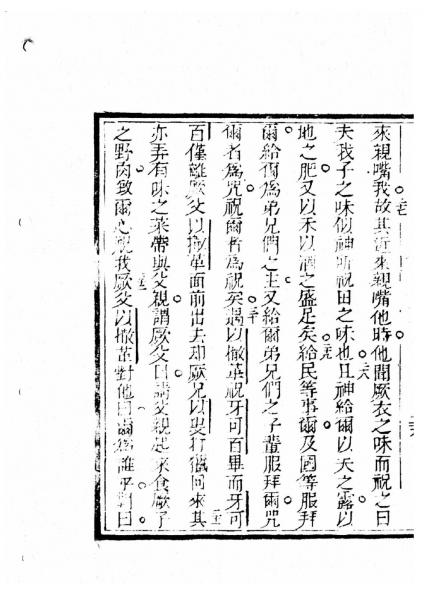 來親嘴我故其近來親嘴他時他聞厥衣之味而祝之曰
夫我子之味似神所祝田之味也且神給爾以天之露以
地之肥又以禾以酒之盛足矣給民等事爾及國等服拜
爾給爾為弟兄們之主又給爾弟兄們之子輩服拜爾咒
爾者為咒祝爾者為祝矣遇以撒革祝牙可百畢而牙可
百僅離厥父以撒革面前出去却厥兄以叟打獵回來其
亦弄有味之菜帶與父親謂厥父曰請父親起來食厥子
之野肉致爾心祝我厥父以撒革對他曰爾為誰乎對曰